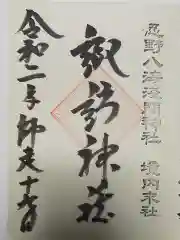 忍野八海浅間神社 境内末社
諏訪神社
令和二年師走十七日